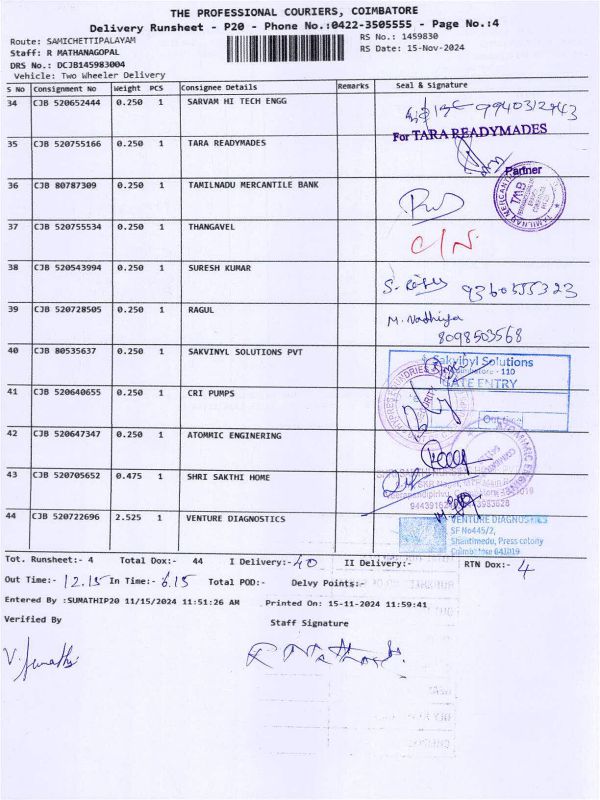 THE PROFESSIONAL COURIERS, COIMBATORE
Delivery Runsheet - P20 - Phone No.:0422-3505555 - Page No.:4
Route: SAMICHETTIPALAYAM
RS No.: 1459830
Staff: R MATHANAGOPAL
RS Date: 15-Nov-2024
DRS No.: DCJB145983004
Vehicle: Two Wheeler Delivery
S No Consignment No Weight PCS Consignee Details Remarks Seal & Signature
34 CJB 520652444 0.250 1 SARVAM HI TECH ENGG 9940312943
For TARA READYMADES
35 CJB 520755166 0.250 1 TARA READYMADES
Partner
36 CJB 80787309 0.250 1 TAMILNADU MERCANTILE BANK TMB
37 CJB 520755534 0.250 1 THANGAVEL C/N
38 CJB 520543994 0.250 1 SURESH KUMAR 9360555323
39 CJB 520728505 0.250 1 RAGUL M. Vadhiya
8098503568
40 CJB 80535637 0.250 1 SAKVINYL SOLUTIONS PVT Sakvinyl Solutions
Coimbatore - 110
GATE ENTRY
41 CJB 520640655 0.250 1 CRI PUMPS
Out time
42 CJB 520647347 0.250 1 ATOMMIC ENGINERING
43 CJB 520705652 0.475 1 SHRI SAKTHI HOME
44 CJB 520722696 2.525 1 VENTURE DIAGNOSTICS VENTURE DIAGNOSTICS
SF No445/2,
Shantimedu, Press colony
Coimbatore 641019
Tot. Runsheet:- 4 Total Dox:- 44 I Delivery:- 40 II Delivery:- RTN Dox:- 4
Out Time:- 12.15 In Time:- 6.15 Total POD:- Delvy Points:-
Entered By :SUMATHIP20 11/15/2024 11:51:26 AM Printed On: 15-11-2024 11:59:41
Verified By Staff Signature
V. Sumathi